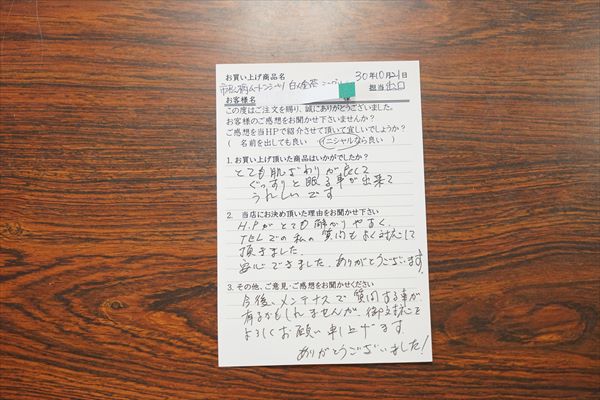 お買い上げ商品名 30年10月21日
市松柄ムートンシーツ 白 担当 出口
お客様名
この度はご注文を賜り、誠にありがとうございました。
お客様のご感想をお聞かせ下さいませんか?
ご感想を当HPで紹介させて頂いて宜しいでしょうか?
( 名前を出しても良い イニシャルなら良い )
1. お買い上げ頂いた商品はいかがでしたか?
とても肌ざわりが良くて
ぐっすりと眠る事が出来て
うれしいです
2. 当店にお決め頂いた理由をお聞かせ下さい
H.Pがとても解かりやすく、
TELでの私の質問もよく対応して
頂きました。
安心できました。ありがとうございます。
3. その他、ご意見・ご感想をお聞かせください
今後、メンテナスで質問する事が
有るかもしれませんが、御対応を
よろしくお願い申し上げます。
ありがとうございました!